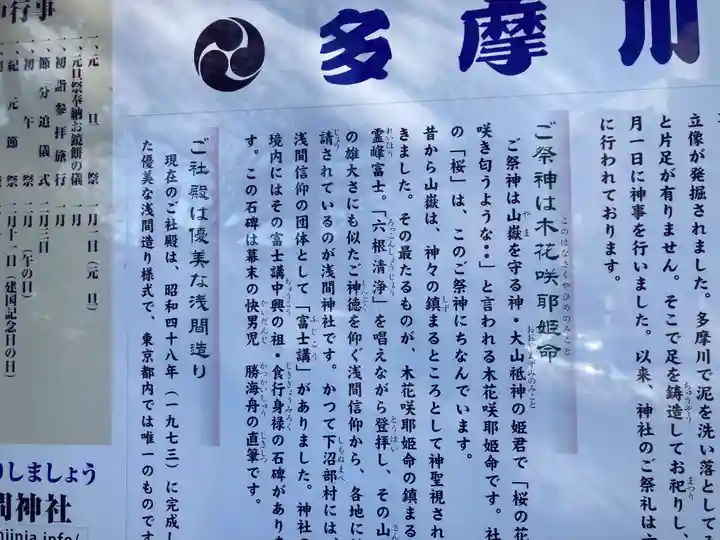 多摩川
立像が発掘されまし
と片足が有りません。多摩川で泥を洗い落として
そこで足を鋳造してお祀りし、
月一日に神事を行いました。以来、神社のご祭礼は
に行われております。
ご祭神は木花咲耶姫命
ご祭神は山嶽を守る神・大山祇神の姫君で「桜の花
咲き匂うような・・」と言われる木花咲耶姫命です。社
の「桜」は、このご祭神にちなんでいます。
昔から山嶽は、神々の鎮まるところとして神聖視され
きました。その最たるものが、木花咲耶姫命の鎮まる
霊峰富士。「六根清浄」を唱えながら登拝し、その山
の雄大さにも似たご神徳を仰ぐ浅間信仰から、各地に
請されているのが浅間神社です。かつて下沼部村には、
浅間信仰の団体として「富士講」がありました。神社の
境内にはその富士講中興の祖・食行身禄の石碑があり
す。この石碑は幕末の快男児 勝海舟の直筆です。
ご社殿は優美な浅間造り
現在のご社殿は、昭和四十八年(一九七三)に完成し
た優美な浅間造り様式で、東京都内では唯一のものです
行事
一、元旦祭 一月一日(元旦)
一、元旦祭奉納お鏡餅の儀 一月
、初詣参拝旅行 一月
、節分追儺式 二月三日
、初午祭 二月(午の日)
、紀元節祭 二月十一日(建国記念日の日)
りしましょう
間神社
njinja.info/